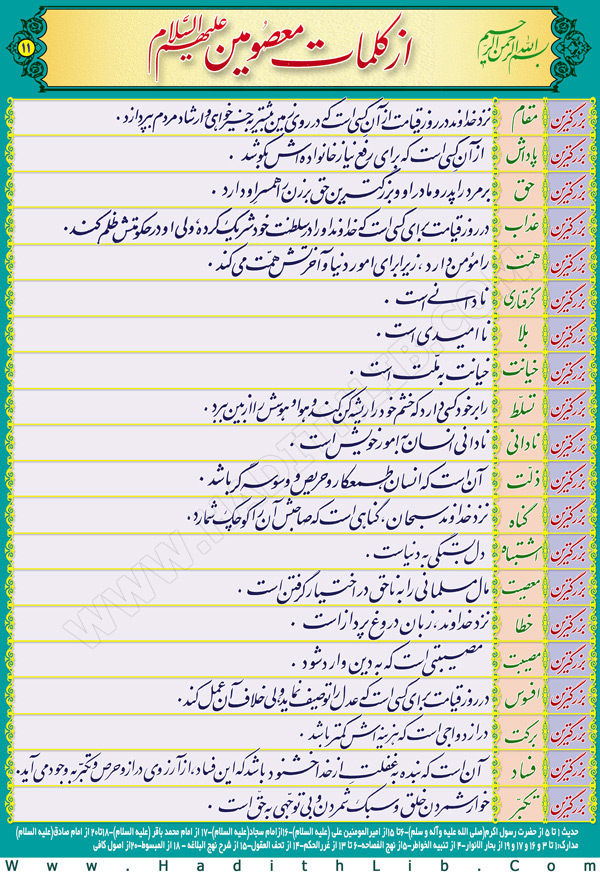 بسم الله الرحمن الرحیم
از کلمات معصومین علیهم السّلام
۱۱
بزرگترین مقام نزد خداوند در روز قیامت از آن کسی است که در روی زمین بیشتر به خیرخواهی و ارشاد مردم بپردازد .
بزرگترین پاداش از آن کسی است که برای رفع نیاز خانواده اش بکوشد .
بزرگترین حق بر مرد را پدر و مادر او و بزرگترین حق بر زن را همسر او دارد .
بزرگترین عذاب در روز قیامت برای کسی است که خداوند او را در سلطنت خود شریک کرده، ولی او در حکومتش ظلم کند .
بزرگترین همّت را مؤمن دارد ، زیرا برای امور دنیا و آخرتش همّت می کند .
بزرگترین گرفتاری نادانی است .
بزرگترین بلا ناامیدی است .
بزرگترین خیانت خیانت به ملّت است .
بزرگترین تسلّط را بر خود کسی دارد که خشم خود را ریشه کن کند و هوا و هوسش را از بین ببرد .
بزرگترین نادانی نادانی انسان به امور خویش است .
بزرگترین ذلّت آن است که انسان طمعکار و حریص و وسوسه گر باشد .
بزرگترین گناه نزد خداوند سبحان ، گناهی است که صاحبش آن را کوچک شمارد .
بزرگترین اشتباه دل بستگی به دنیاست .
بزرگترین معصیت مال مسلمانی را به ناحق در اختیار گرفتن است .
بزرگترین خطا نزد خداوند ، زبان دروغ پرداز است .
بزرگترین مصیبت مصیبتی است که به دین وارد شود .
بزرگترین افسوس در روز قیامت برای کسی است که عدل را توصیف نماید ولی خلاف آن عمل کند .
بزرگترین برکت در ازدواجی است که هزینه اش کمتر باشد .
بزرگترین فساد آن است که بنده به غفلت از خدا خشنود باشد که این فساد ، از آرزوی دراز و حرص و تکبّر به وجود می آید .
بزرگترین تکبّر خوار شمردن خلق و سبک شمردن و بی توجّهی به حقّ است .
حدیث ۱ تا ۵ از حضرت رسول اکرم(صلی الله علیه وآله و سلم)-۶تا ۱۵از امیرالمومنین علی (علیه السلام)-۱۶ازامام سجاد(علیه السلام)-۱۷ از امام محمد باقر (علیه السلام)-۱۸تا۲۰ از امام صادق(علیه السلام)
مدارک:۱ تا ۳ و ۱۶ و ۱۷ و ۱۹ از بحار الانوار-۴ از تنبیه الخواطر-۵ از نهج الفصاحه-۶ تا ۱۳ از غررالحکم-۱۴ از تحف العقول-۱۵ از شرح نهج البلاغه - ۱۸ از المبسوط-۲۰از اصول کافی
Www.HadithLib.Com
WWW.HADITHLIB.COM